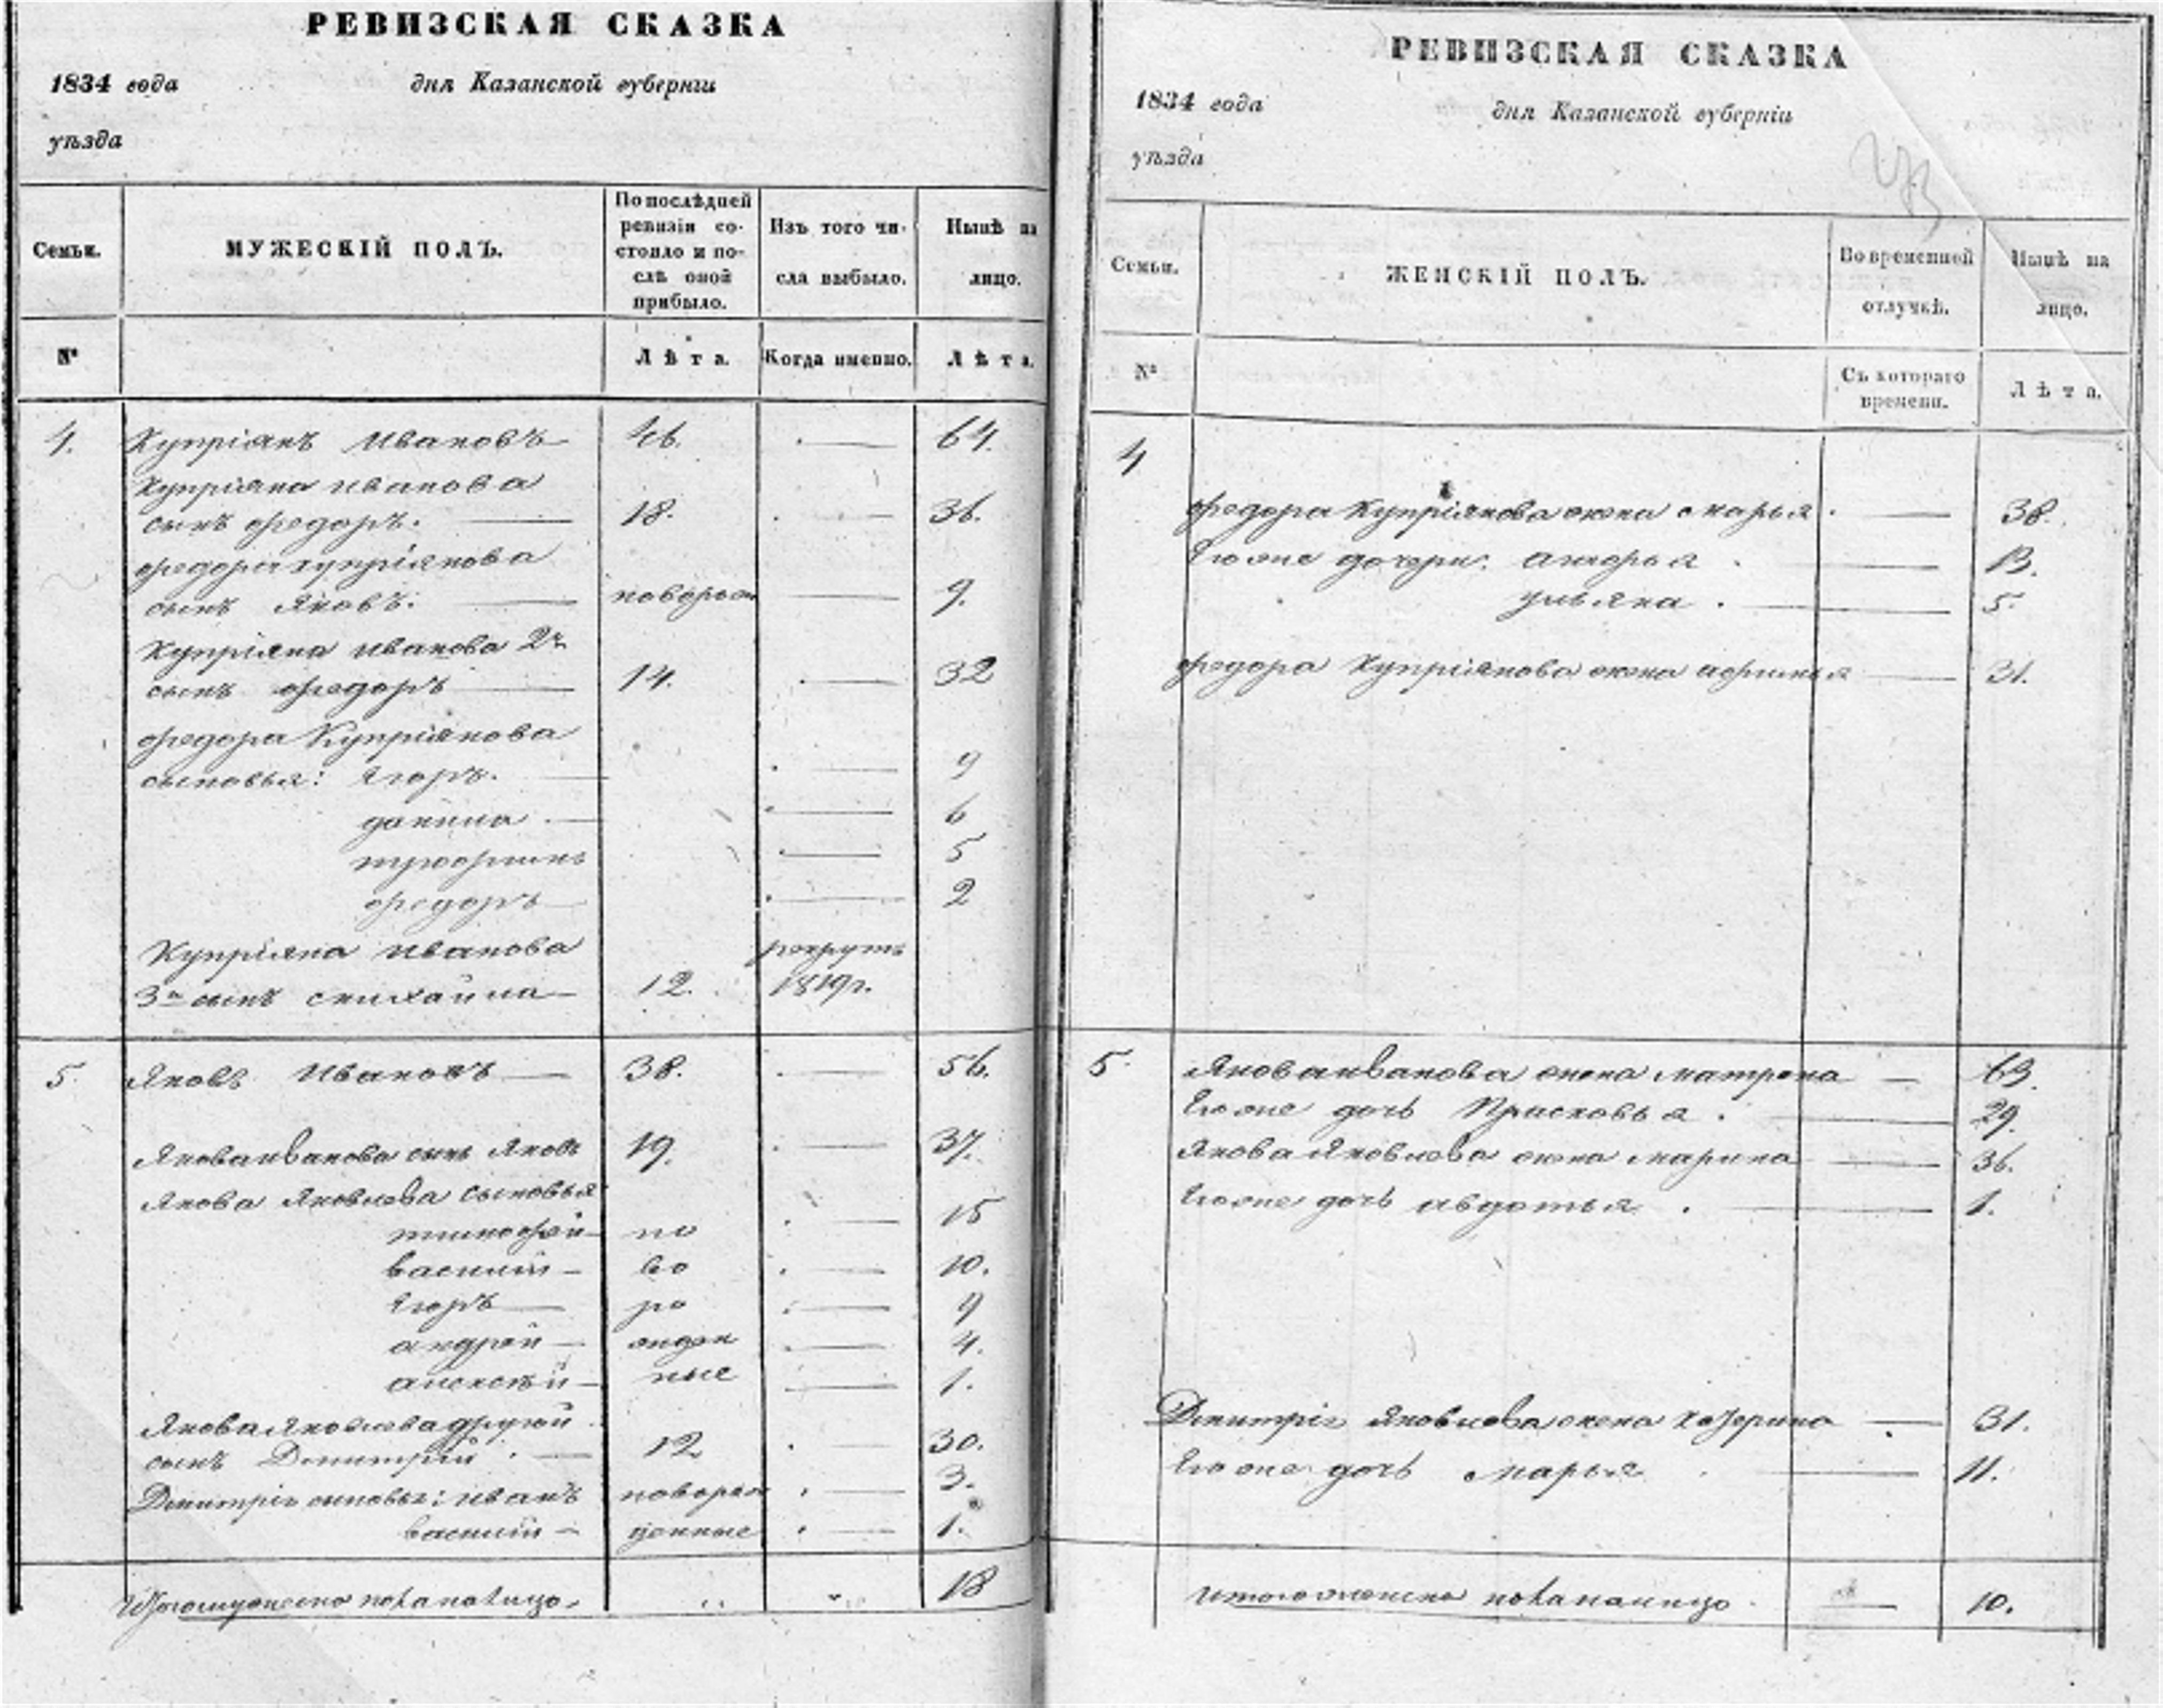 РЕВИЗСКАЯ СКАЗКА
1834 года дня Казанской губерніи
уѣзда
Семьи. МУЖЕСКІЙ ПОЛЪ. По послѣдней ревизіи состояло и послѣ оной прибыло. Изъ того числа выбыло. Нынѣ на лицо.
№ Лѣта. Когда именно. Лѣта.
4. Купріянъ Ивановъ 46. 64.
Купріяна Иванова
сынъ Федоръ. 18. 36.
Федора Купріянова
сынъ Яковъ. новорож 9.
Купріяна Иванова 2й
сынъ Федоръ 14. 32
Федора Купріянова
сыновья: Егоръ. 9
данила 6
трофимъ 5
федоръ 2
Купріяна Иванова рекрутъ
3й сынъ Михайла 12. 1819г.
5. Яковъ Ивановъ 38. 56.
Якова Иванова сынъ Яковъ 19. 37.
Якова Яковлева сыновья
тимофей но 15
василій во 10.
Егоръ ро 9
андрей жден 4.
алексѣй ные 1.
Якова Яковлева другой
сынъ Дмитрій 12 30.
Дмитрія сыновья: иванъ новорож 3.
василій денные 1.
Итого мужеска пола на лицо. 18
РЕВИЗСКАЯ СКАЗКА
1834 года дня Казанской губерніи
уѣзда
Семьи. ЖЕНСКІЙ ПОЛЪ. Во временной отлучкѣ. Нынѣ на лицо.
№ Съ котораго времени. Лѣта.
4
Федора Купріянова жена Марья 38.
Его же дочери: 13.
ульяна 5.
Федора Купріянова жена афимья 31.
5. Якова Иванова жена матрена 63.
Его же дочь Прасковья 29.
Якова Яковлева жена марина 36.
Его же дочь авдотья 1.
Дмитрія Яковлева жена катерина 31.
Его же дочь Марья 11.
Итого женска пола налицо 10.